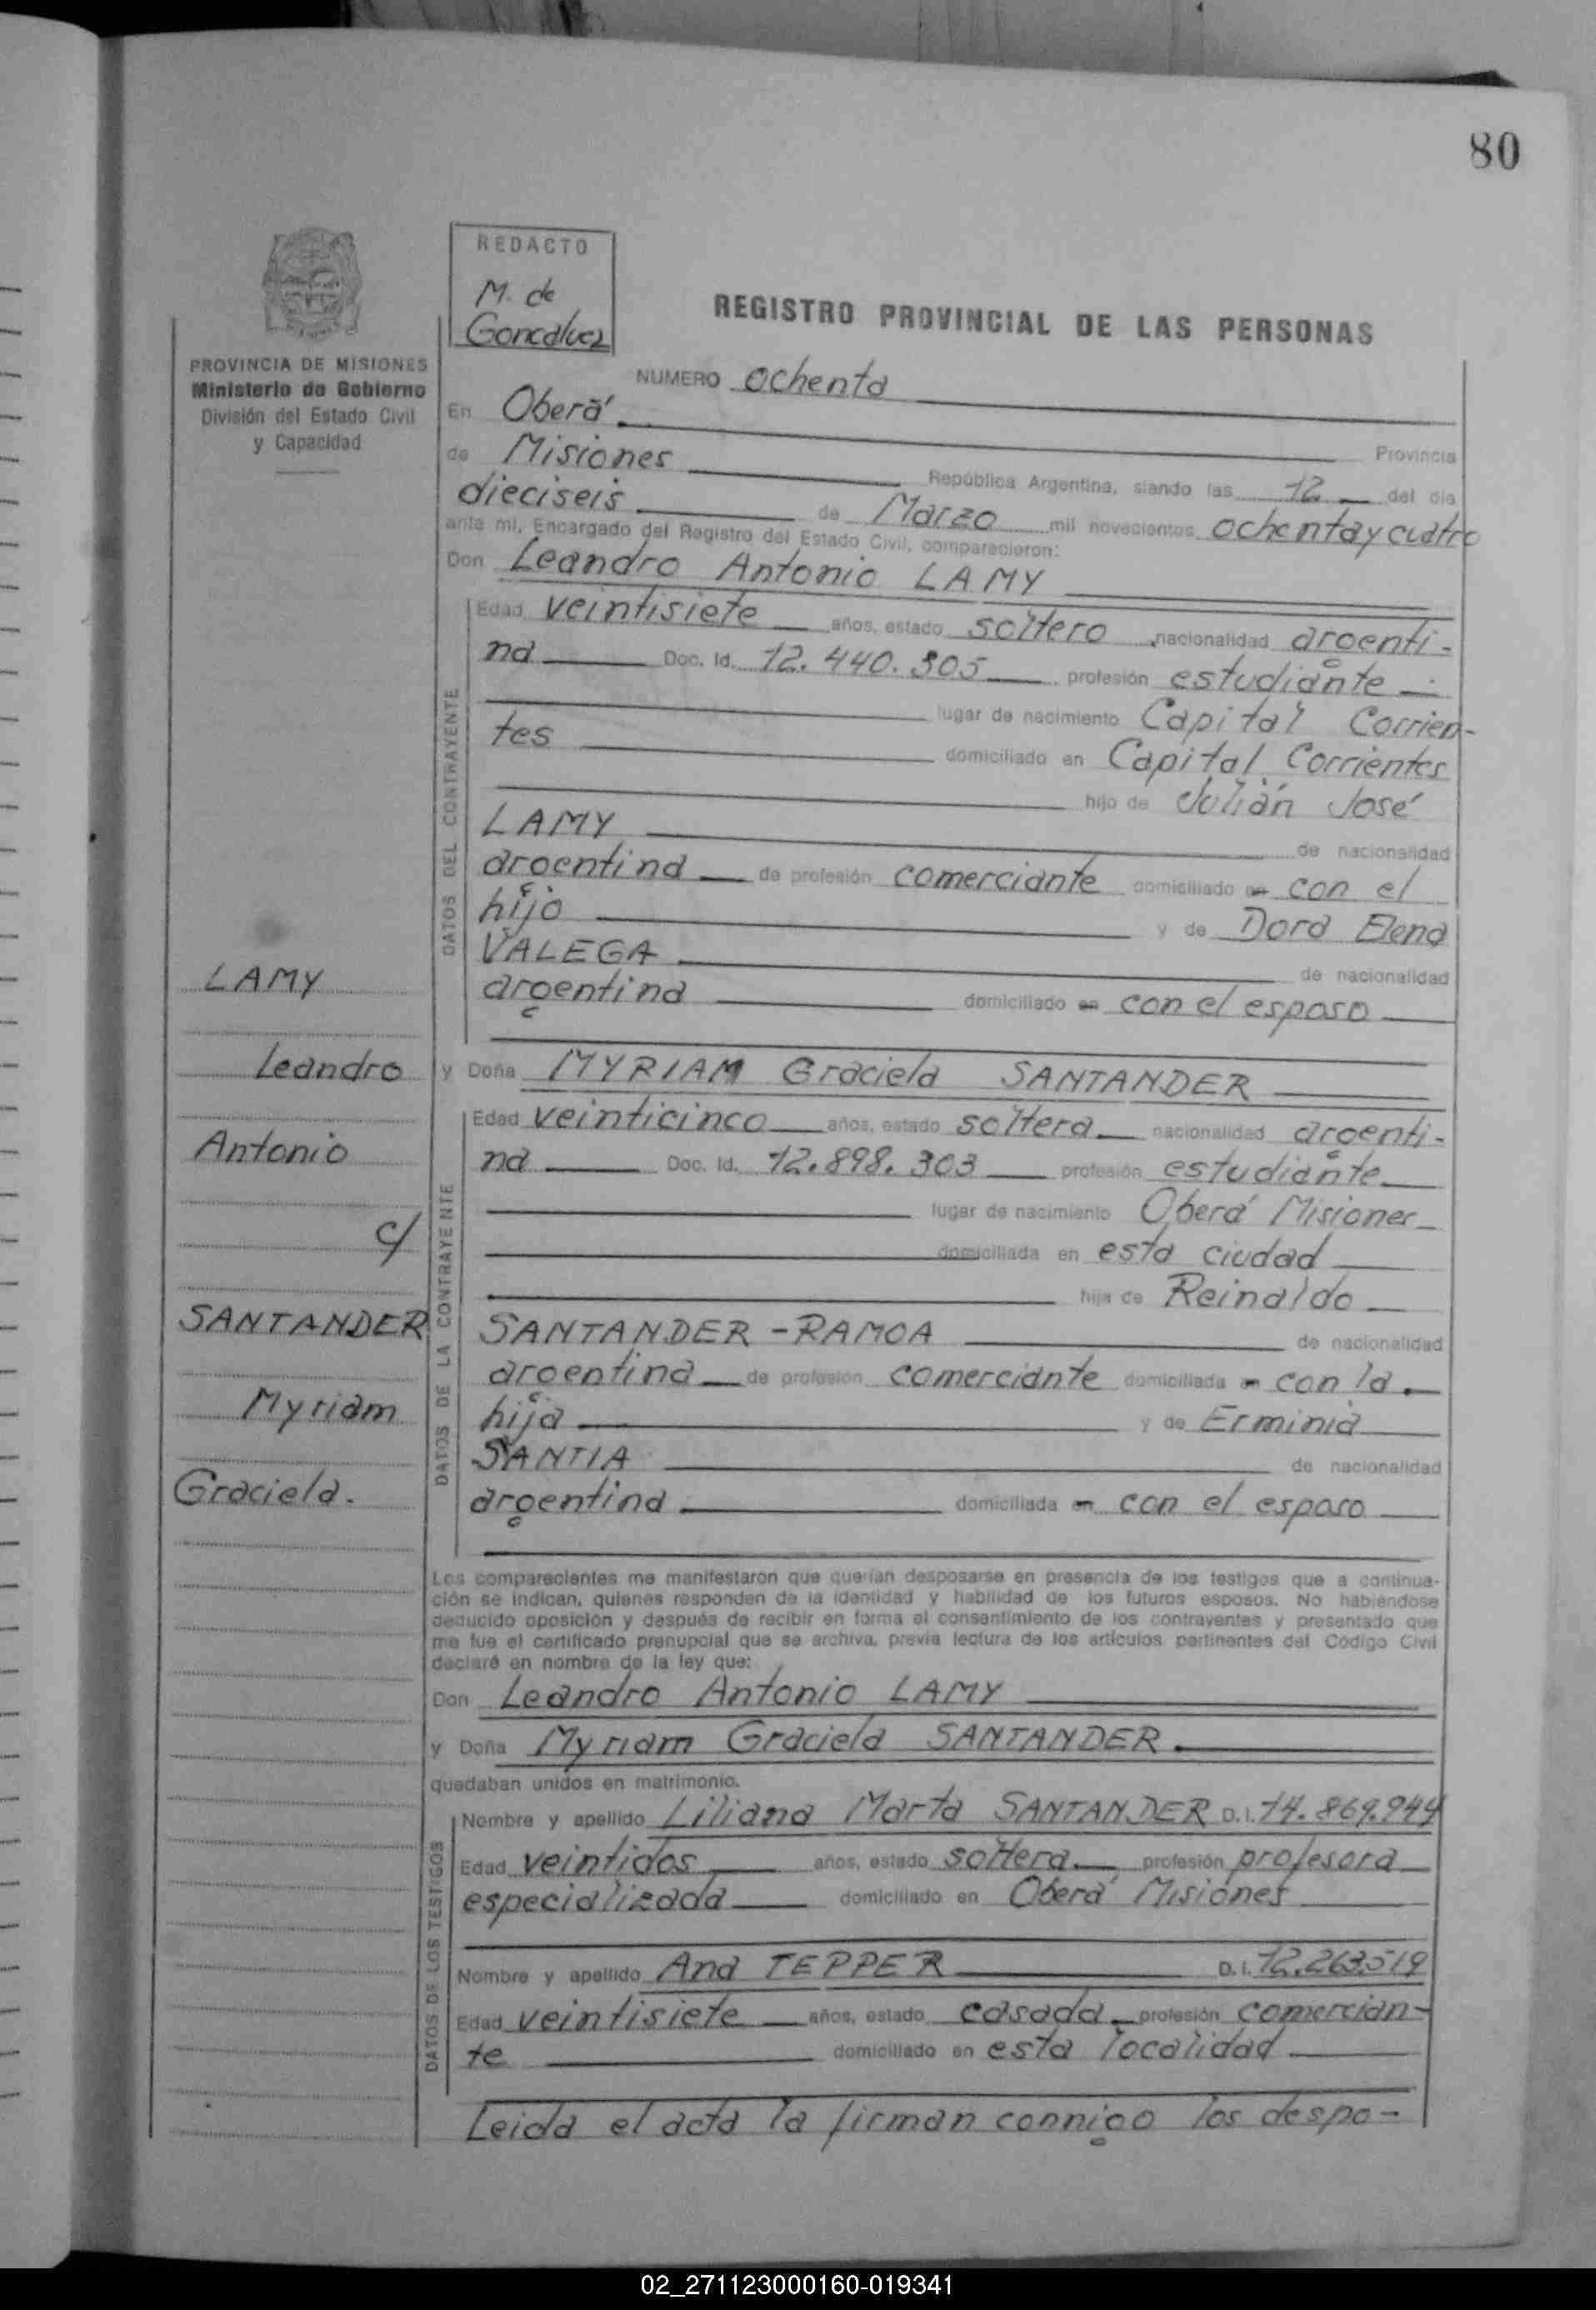 80
REDACTO
M. de
Goncalvez
REGISTRO PROVINCIAL DE LAS PERSONAS
PROVINCIA DE MISIONES
Ministerio de Gobierno
División del Estado Civil
y Capacidad
NUMERO ochenta
En Oberá
Provincia
de Misiones República Argentina, siendo las 12 del día
dieciseis de Marzo mil novecientos ochenta y cuatro
ante mi, Encargado del Registro del Estado Civil, comparecieron:
Don Leandro Antonio LAMY
DATOS DEL CONTRAYENTE
Edad veintisiete años, estado soltero nacionalidad argenti-
na Doc. Id. 12.440.305 profesión estudiante
lugar de nacimiento Capital Corrien-
tes domiciliado en Capital Corrientes
hijo de Julián José
LAMY de nacionalidad
argentina de profesión comerciante domiciliado con el
hijo y de Dora Elena
VALEGA de nacionalidad
argentina domiciliado con el esposo
y Doña MYRIAM Graciela SANTANDER
DATOS DE LA CONTRAYENTE
Edad veinticinco años, estado soltera nacionalidad argenti-
na Doc. Id. 12.898.303 profesión estudiante
lugar de nacimiento Oberá Misiones
domiciliada en esta ciudad
hija de Reinaldo
SANTANDER - RAMOA de nacionalidad
argentina de profesión comerciante domiciliada con la
hija y de Erminia
SANTIA de nacionalidad
argentina domiciliada con el esposo
LAMY
Leandro
Antonio
c/
SANTANDER
Myriam
Graciela.
Los comparecientes me manifestaron que querían desposarse en presencia de los testigos que a continua-
ción se indican, quienes responden de la identidad y habilidad de los futuros esposos. No habiendose
deducido oposición y después de recibir en forma el consentimiento de los contrayentes y presentado que
me fue el certificado prenupcial que se archiva, previa lectura de los artículos pertinentes del Código Civil
declaré en nombre de la ley que:
Don Leandro Antonio LAMY
y Doña Myriam Graciela SANTANDER.
quedaban unidos en matrimonio.
DATOS DE LOS TESTIGOS
Nombre y apellido Liliana Marta SANTANDER D.I. 14.869.944
Edad veintidos años, estado soltera profesión profesora
especializada domiciliado en Oberá Misiones
Nombre y apellido Ana TEPPER D.I. 12.263.519
Edad veintisiete años, estado casada profesión comercian-
te domiciliado en esta localidad
Leida el acta la firman conmigo los despo-
02_271123000160-019341